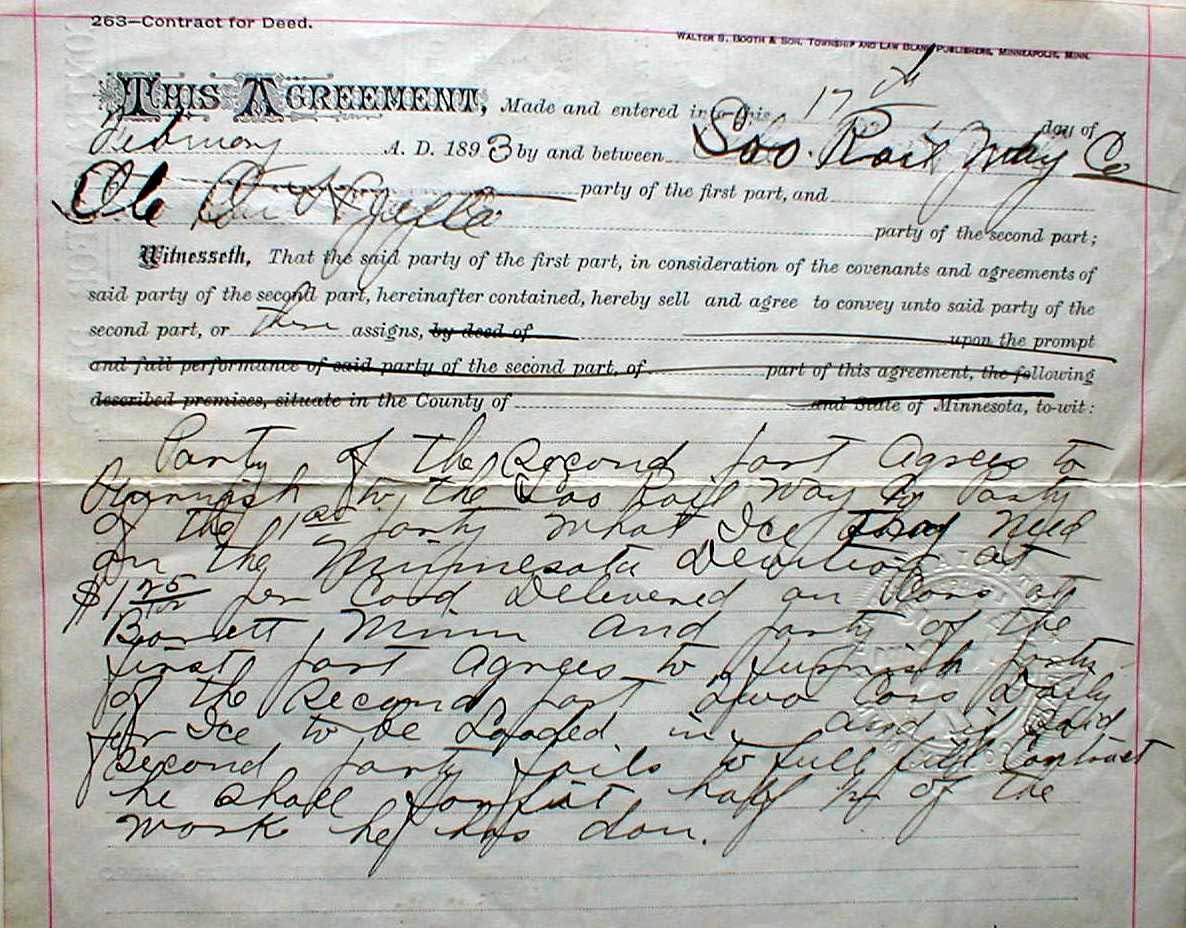 263—Contract for Deed.
WALTER S. BOOTH & SON, TOWNSHIP AND LAW BLANK PUBLISHERS, MINNEAPOLIS, MINN.
THIS AGREEMENT, Made and entered into this 17th day of
February A. D. 1893 by and between Soo Rail Way Co
party of the first part, and
Ole
party of the second part;
Witnesseth, That the said party of the first part, in consideration of the covenants and agreements of
said party of the second part, hereinafter contained, hereby sell and agree to convey unto said party of the
second part, or assigns, by deed of upon the prompt
and full performance of said party of the second part, of part of this agreement, the following
described premises, situate in the County of and State of Minnesota, to-wit:
Party of the Second part Agrees to
Furnish to the Soo Rail Way Co Party
of the 1st party what Ice they Need
on the Minnesota Devition at
$1 25/100 per Cord Delivered on Cars at
Barrett, Minn and party of the
first part Agrees to furnish party
of the Second part two Cars Daily
for Ice to be Loaded in. and if Said
Second party fails to full fill Contract
he shall forfiut half of the
work he has don.